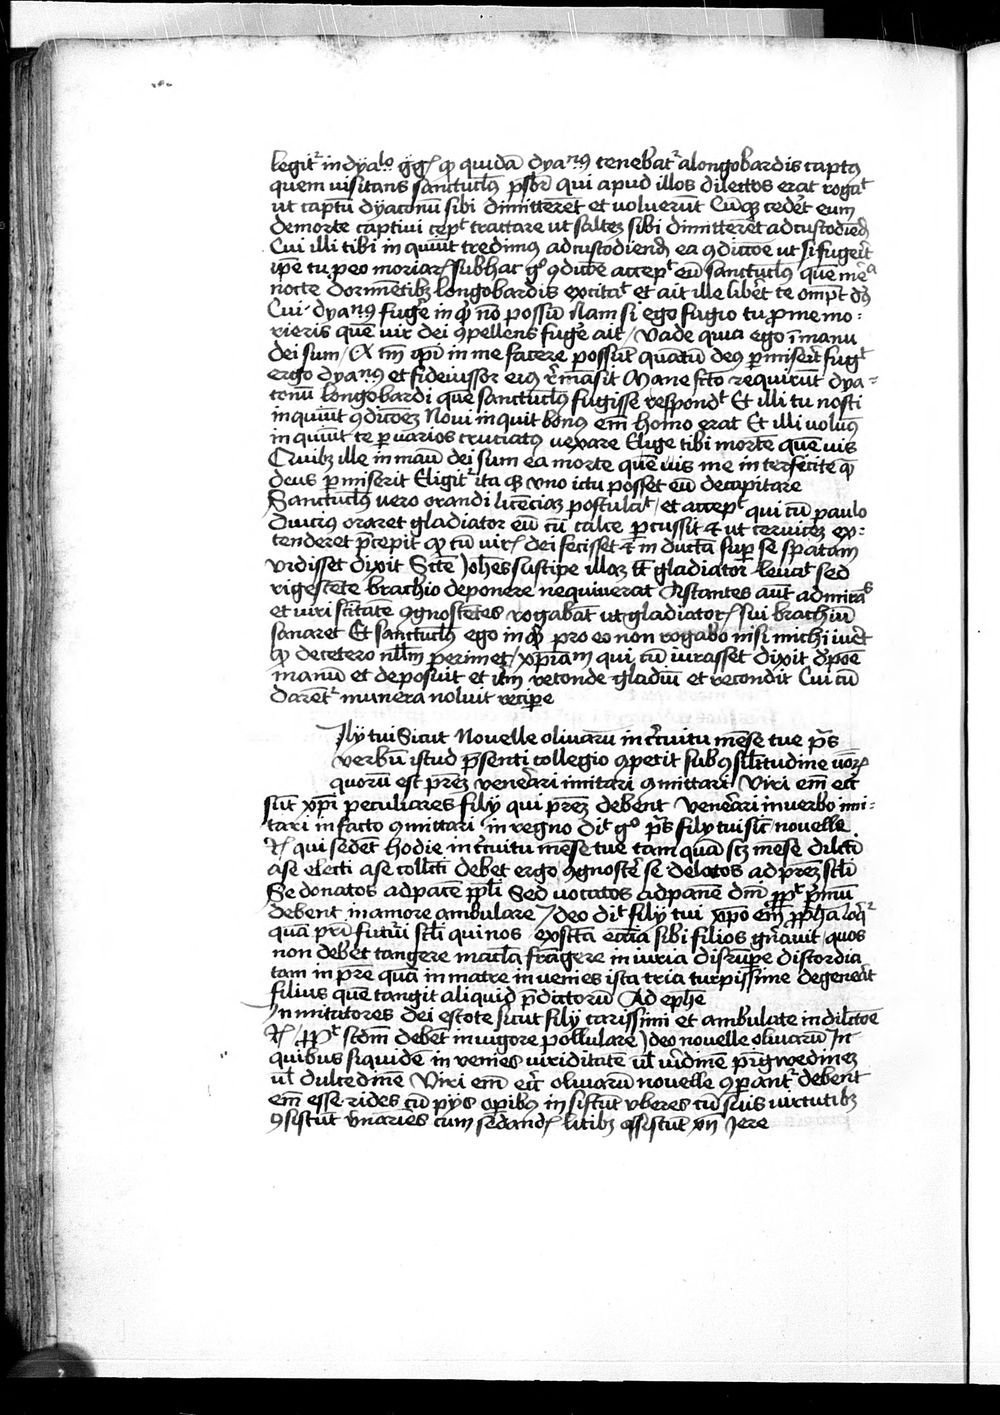 legit᷑ in dyalo g̃gꝰ qͥ quidā dyan᷒ tenebat᷑ a longobardis captꝰ
quem visitans sanctul᷒ p̃sbr̃ qui apud illos dilectos erat rogaᵗ
ut captū dyaconū sibi dimitterēt et voluerūt Cūqꝫ cedẽt eum
de morte captivi cepᵗ tractare ut saltez sibi dimitterēt ad custodiēd
Cui illi tibi in quiūt credimꝰ ad custodiend ea ꝯdiccōe ut si fugerit
ip̃e tu p eo moriarꝰ sub hac gͦ ꝯdicōe accepᵗ eū sanctul᷒ que mẽᵃ
nocte dormētibꝫ longobardis excitaᵗ et ait ille libẽt te omp̃t dꝰ
Cui dyan᷒ fugẽ inqͥ nō possū Nam si ego fugio tu p me mo=
rieris quē vir dei ꝯpellens fugẽ ait / vade quia ego ī manu
dei sum / Et tm̄ ip̃i in me facere possūt quātū deꝰ p miserit fugᵗ
ergo dyan᷒ et fideiussor eiꝰ r̃māsit Mane fcō requirūt dya=
conū longobardi que sanctul᷒ fugisse respondᵗ Et illi tu nosti
in quiūt ꝯdicōeꝫ Novi inquit bonus em̄ homo erat Et illi volūꝰ
in quiūt te p varios cruciatꝰ vexare Elige tibi mortē quē vis
Quibꝫ ille in manu dei sum ea morte quē vis me interficite qͣ
deus p miserit Eligit᷑ ita qꝫ uno ictu posset eū decapitare
Sanctul᷒ vero orandi licēciaꝫ postulaᵗ / et accepᵗ qui cū paulo
diucius oraret gladiator eū cū calce p cussit et ut cervicez ex=
tenderet p̃cepit qͦ cū virꝰ dei fecisset et in ductā sup se spatam
vidisset dixit Sctē Johēs suscipe illaꝫ tc̄ gladiator levaᵗ sed
rigescēte brachio deponere nequiverat Astantes aūt admirāˢ
et viri scītate ꝯgnoscētes rogabāt ut gladiatorꝰ sui brachiū
sanaret Et sanctul᷒ ego inqͥ pro eo non rogabo nisi michi iurēt
qͥ decetero nll̄m perimet / xp̄iāᵐ qui cū iurasset dixit dp̄oē
manū et deposuit et itm̄ reconde gladiū et recondit Cui cū
darēt᷑ munera noluit recipe
Fily tui Sicut Novelle olivarū in circuitu mēse tue p̄s
verbū istud p̄senti collegio ꝯpetit sub ꝯsilitudine uōrꝰ
quorū est prēꝫ venerāri imitari ꝯmittari Viri em̄ ecc̄
sūt xp̄i peculiares fily qui prēꝫ debent venerari in verbo imi=
tari in facto ꝯmittari in regno diᵗ gͦ p̄s fily tui sic̄ novelle
Rꝰ qui sedēt hodie in circuitu mēse tue tam quā scꝫ mese dilcti
a se electi a se collecti debēt ergo ꝯgnoscẽ se delatos ad prēꝫ scl̄i
Se donatos ad pacē pp̄li Sed vocatos ad panē dn̄i ppᵗ p̄mū
debent in amore ambulare Jdeo diᵗ fily tui xp̄o em̄ pph̄a loq᷑
quā pr̄i futuri scl̄i qui nos ex sctā ecc̄ia sibi filios gn̄avit / quos
non debet tangere macl̄a frāgere in iuria disrūpe discordia
tam in pr̄e quā in matre in venies ista tria turpissime degenerāt
filius quē tangit aliquid p̄dictorū Ad ephe
Jn mitatores dei estote sicut fily carissimi et ambulate in dilectōe
Rꝰ / ppᵗ scdm̄ debēt in vigore pollulare Jdeo novelle olivarū Jn
quibus siquidē in venies viriditatē ul̄ vir̄dinē pinguedineꝫ
ul̄ dulcedinē Viri em̄ ecc̄ olivarū novelle ꝯparant᷑ debent
em̄ esse rides cū pijs op̄ibꝰ in sistūt vberes cū suis virtutibꝫ
ꝯsistūt vnāries cum sedandꝰ litibꝫ assistūt vn̄ Jere